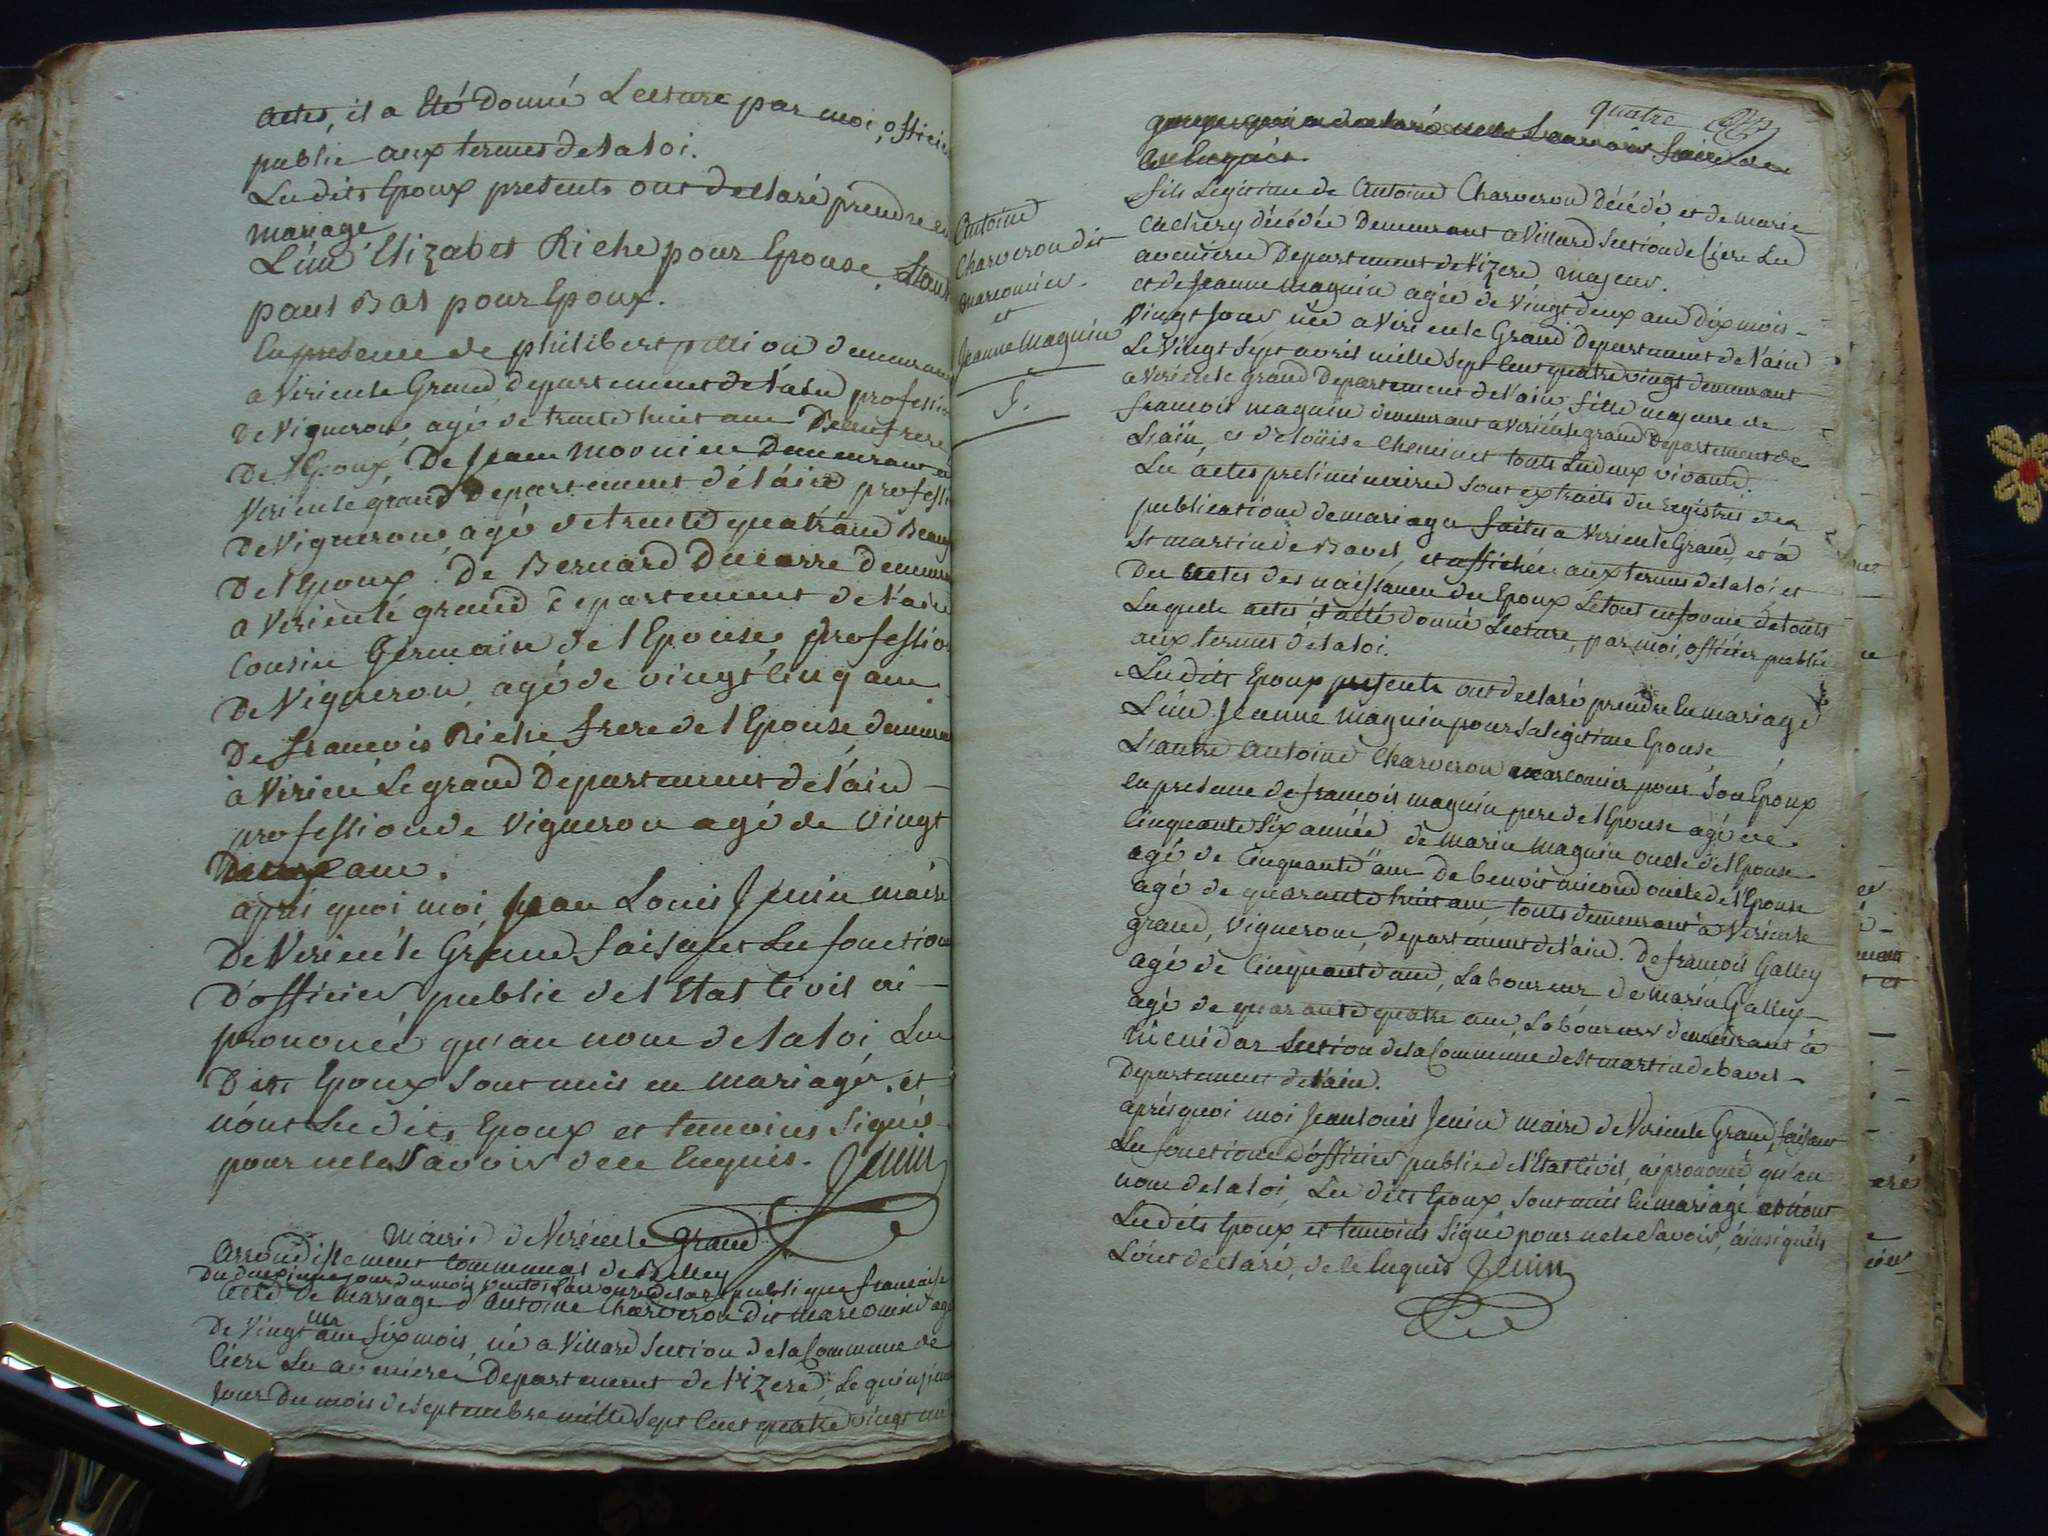 actes, il a été Donné Lecture par moi, officier
public aux termes de la loi.
Les dits Epoux présents ont déclaré prendre en
mariage
L'un Elizabet Riche pour Epouse,
paul Bal pour Epoux.
En presence de philibert demeurant
a Virieu le Grand, Departement de l'ain profession
De Vigneron, agé de trente huit ans frere
De l'Epoux, De Jean Monnier Demeurant a
Virieu le grand Departement de l'ain profession
De Vigneron, agé de trente quatr'ans Beau
De l'Epoux. De Bernard Ducarre Demeurant
a Virieu le grand Departement de l'ain
Cousin Germain de l'Epouse, profession
De Vigneron, agé de vingt Cinq ans
De francois Riche frere de l'Epouse, demeurant
à Virieu Le grand Departement de l'ain -
profession de Vigneron agé de Vingt
Deux ans.
après quoi moi Jean Louis Jenin maire
De Virieu le Grand faisant Les fonctions
D'officier public de l'Etat Civil ai -
prononcé qu'au nom de la loi, Les
Dits Epoux sont unis en mariage. et
n'ont Les dits Epoux et temoins Signés
pour ne le Savoir de ce Enquis. Jenin
Mairie de Virieu le Grand
Arrondissement Communal de Belley
Du jour du mois Ventos l'an onze de la republique francaise
Acte de mariage d'Antoine Charveron dit marconnier agé
De Vingt un ans Six mois, né a Villard Section de la Commune de
Ciere Les avenieres Departement de l'izere, Le quinzieme
Jour Du mois de Septembre mille Sept Cent quatre vingt un
Antoine
Charveron dit
marconnier.
et
Jeanne Maguin
J.
quatre
fils Légitime de Antoine Charveron Décédé et de marie
Cachery décédée Demeurant a Villard Section de Ciere Les
avenieres Departement de l'izere majeur.
et de Jeanne Maguin agée de Vingt deux ans Dix mois -
Vingt Jours née a Virieu le Grand Departement de l'ain
Le Vingt Sept avril mille Sept Cent quatre vingt demeurant
a Virieu le grand Departement de l'ain, fille majeure de
francois maguin demeurant a Virieu le grand Departement de
L'ain, et de Loüise Cheminet touts Les deux vivants.
Les actes preliminaires sont extraits des registres des
publications de mariage faites a Virieu le Grand, et à
St martin de Bavel, et affichées aux termes de la loi et
Des actes des naissances des Epoux Le tout en forme de touts
Lesquels actes il a été donné Lecture, par moi, officier public
aux termes de la loi.
Les dits Epoux presents ont déclaré prendre En mariage
L'un Jeanne Maguin pour Sa legitime Epouse,
L'autre Antoine Charveron marconnier pour Son Epoux
En presence de francois maguin pere de l'Epouse agé de
Cinquante Six années de marin Maguin oncle de l'Epouse
agé de Cinquante ans De benoit micoud oncle de l'Epouse
agé de quarante huit ans, touts demeurant à Virieu le
grand, Vignerons, departement de l'ain. De francois Galley
agé de Cinquante ans, Laboureur, de Marin Galley -
agé de quarante quatre ans, Laboureurs demeurant à
Section de la Commune de St martin de bavel -
Departement de l'ain.
après quoi moi Jean Louis Jenin maire de Virieu le Grand, faisant
Les fonctions d'officier public de l'Etat Civil, ai prononcé, qu'au
nom de la loi, Les dits Epoux, Sont unis En mariage et n'ont
Les dits Epoux et temoins Signé pour ne le Savoir, ainsi qu'ils
L'ont declaré, de ce Enquis Jenin